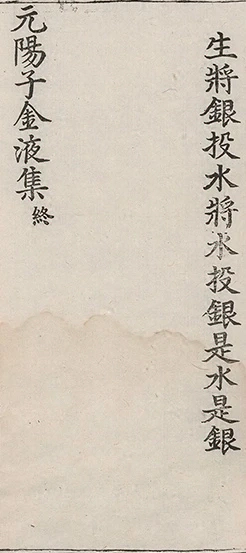 生將銀投水將水投銀是水是銀
元陽子金液集終